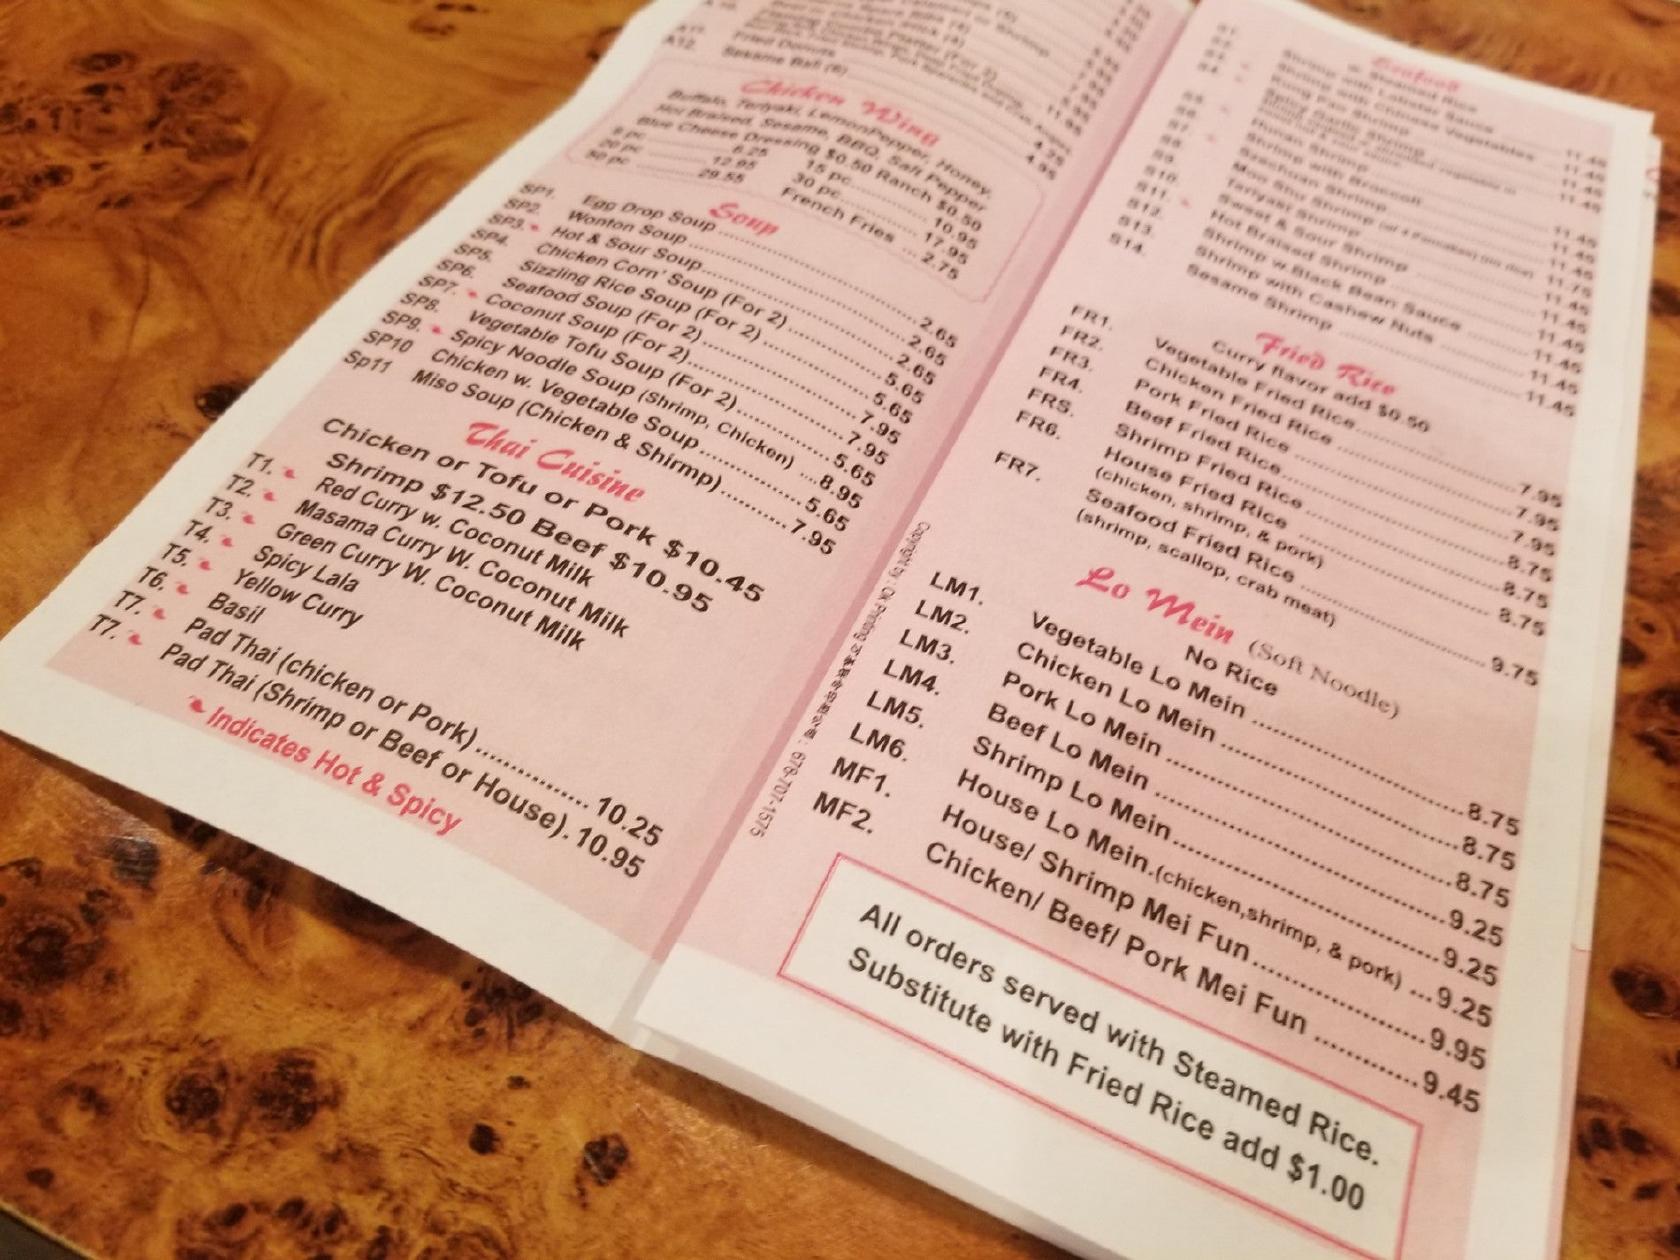 A12.
Fried Donuts
Sesame Ball (6)
11.95
4.75
4.95
Chicken Wing
Buffalo, Teriyaki, LemonPepper, Honey,
Hot Braised, Sesame, BBQ, Salt Pepper
Blue Cheese Dressing $0.50 Ranch $0.50
6.25 15 pc. 10.95
20 pc 12.95 30 pc. 17.95
50 pc 29.55 French Fries 2.75
Soup
SP1. Egg Drop Soup 2.65
SP2. Wonton Soup 2.65
SP3. Hot & Sour Soup 2.65
SP4. Chicken Corn' Soup (For 2) 5.65
SP5. Sizzling Rice Soup (For 2) 5.65
SP6. Seafood Soup (For 2) 7.95
SP7. Coconut Soup (For 2) 7.95
SP8. Vegetable Tofu Soup (For 2) 5.65
SP9. Spicy Noodle Soup (Shrimp, Chicken) 8.95
SP10 Chicken w. Vegetable Soup 5.65
Sp11 Miso Soup (Chicken & Shirmp) 7.95
Thai Cuisine
Chicken or Tofu or Pork $10.45
Shrimp $12.50 Beef $10.95
T1. Red Curry w. Coconut Milk
T2. Masama Curry W. Coconut Milk
T3. Green Curry W. Coconut Milk
T4. Spicy Lala
T5. Yellow Curry
T6. Basil
T7. Pad Thai (chicken or Pork) 10.25
T7. Pad Thai (Shrimp or Beef or House). 10.95
Indicates Hot & Spicy
Seafood
w. Steamed Rice
Shrimp with Lobster Sauce 11.45
Shrimp with Chinese Vegetables 11.45
Kung Pao Shrimp 11.45
Spicy Garlic Shrimp
Hunan Shrimp
Shrimp with Broccoli 11.45
Szechuan Shrimp 11.45
Moo Shu Shrimp (w/ 4 Pancakes) (no rice) 11.75
S10. Teriyaki Shrimp 11.45
S11. Sweet & Sour Shrimp 11.45
S12. Hot Braised Shrimp 11.45
S13. Shrimp w Black Bean Sauce 11.45
S14. Shrimp with Cashew Nuts 11.45
Sesame Shrimp 11.45
Fried Rice
Curry flavor add $0.50
FR1. Vegetable Fried Rice 7.95
FR2. Chicken Fried Rice 7.95
FR3. Pork Fried Rice 7.95
FR4. Beef Fried Rice 8.75
FR5. Shrimp Fried Rice 8.75
FR6. House Fried Rice 8.75
(chicken, shrimp, & pork)
FR7. Seafood Fried Rice 9.75
(shrimp, scallop, crab meat)
Lo Mein (Soft Noodle)
No Rice
LM1. Vegetable Lo Mein 8.75
LM2. Chicken Lo Mein 8.75
LM3. Pork Lo Mein 8.75
LM4. Beef Lo Mein 9.25
LM5. Shrimp Lo Mein 9.25
LM6. House Lo Mein.(chicken,shrimp, & pork) 9.25
MF1. House/ Shrimp Mei Fun 9.95
MF2. Chicken/ Beef/ Pork Mei Fun 9.45
All orders served with Steamed Rice.
Substitute with Fried Rice add $1.00
Copyright by: OK Printing : 678-707-1575